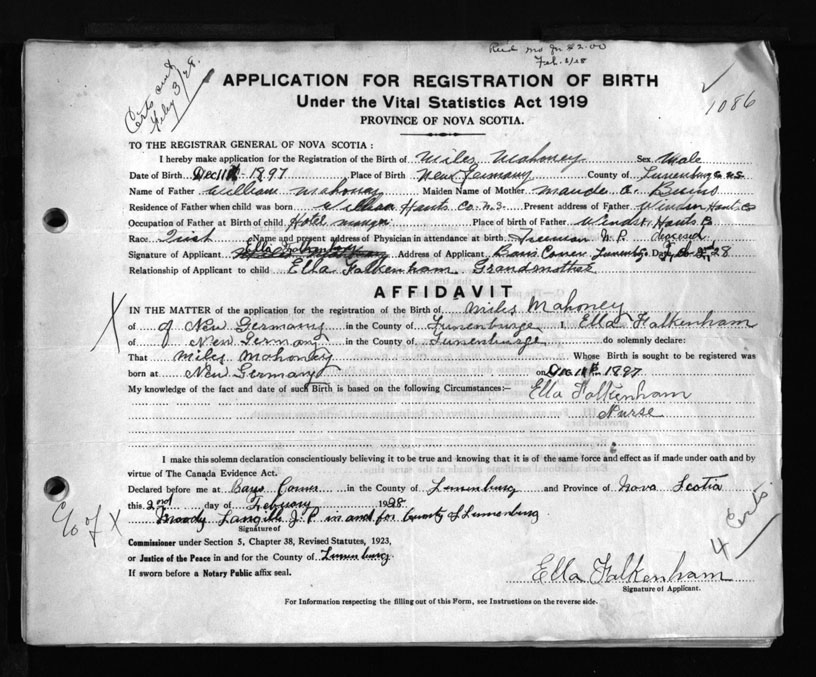 Certs sent
Feby 3/28.
Recd mo for $2.00
Feb. 2/28
APPLICATION FOR REGISTRATION OF BIRTH
1086
Under the Vital Statistics Act 1919
PROVINCE OF NOVA SCOTIA.
TO THE REGISTRAR GENERAL OF NOVA SCOTIA :
I hereby make application for the Registration of the Birth of Miles Mahoney Sex Male
Date of Birth Dec 11 1897 Place of Birth New Germany County of Lunenburg Co N.S.
Name of Father William Mahoney Maiden Name of Mother Maude A.
Residence of Father when child was born Hants Co. N.S. Present address of Father Windsor Hants Co
Occupation of Father at Birth of child Hotel Place of birth of Father Windsor Hants Co
Race Irish Name and present address of Physician in attendance at birth Freeman
Signature of Applicant Ella Address of Applicant Corner 28
Relationship of Applicant to child Ella Falkenham Grandmother
AFFIDAVIT
IN THE MATTER of the application for the registration of the Birth of Miles Mahoney
of of New Germany in the County of Lunenburge I, Ella Falkenham
of New Germany in the County of Lunenburge do solemnly declare:
That Miles Mahoney Whose Birth is sought to be registered was
born at New Germany on Dec 11 1897.
My knowledge of the fact and date of such Birth is based on the following Circumstances:— Ella Falkenham
Nurse
I make this solemn declaration conscientiously believing it to be true and knowing that it is of the same force and effect as if made under oath and by
virtue of The Canada Evidence Act.
Declared before me at Bays Corner in the County of Lunenburg and Province of Nova Scotia
this 2nd day of Febuory 1928
Moody Langille J. P. in and for County of Lunenburg
Signature of
c/o of X
4 Certs.
Commissioner under Section 5, Chapter 38, Revised Statutes, 1923,
or Justice of the Peace in and for the County of Lunenburg
If sworn before a Notary Public affix seal.
Ella Falkenham
Signature of Applicant.
For Information respecting the filling out of this Form, see Instructions on the reverse side.